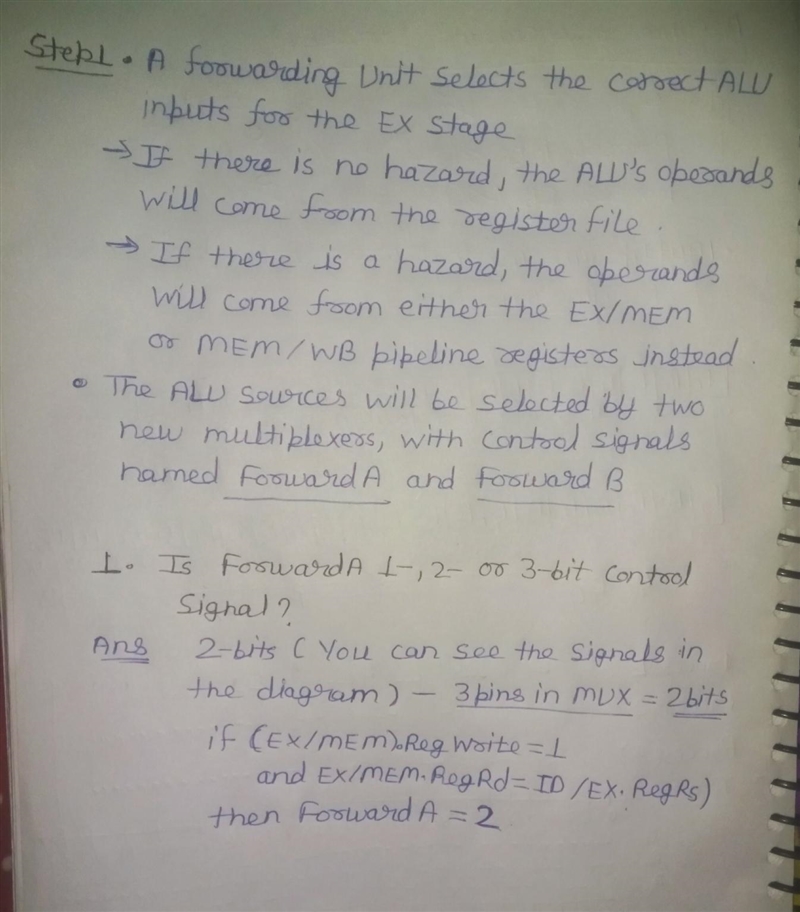 Step1 • A forwarding Unit selects the correct ALU
inputs for the EX stage
→ If there is no hazard, the ALU's operands
will come from the register file.
→ If there is a hazard, the operands
will come from either the EX/MEM
or MEM/WB pipeline registers instead.
• The ALU sources will be selected by two
new multiplexers, with control signals
named ForwardA and Forward B
1. Is ForwardA 1-, 2- or 3-bit control
signal?
Ans 2-bits ( You can see the signals in
the diagram) - 3 pins in MUX = 2 bits
if (EX/MEM).RegWrite = 1
and EX/MEM.RegRd = ID/EX.RegRs)
then ForwardA = 2